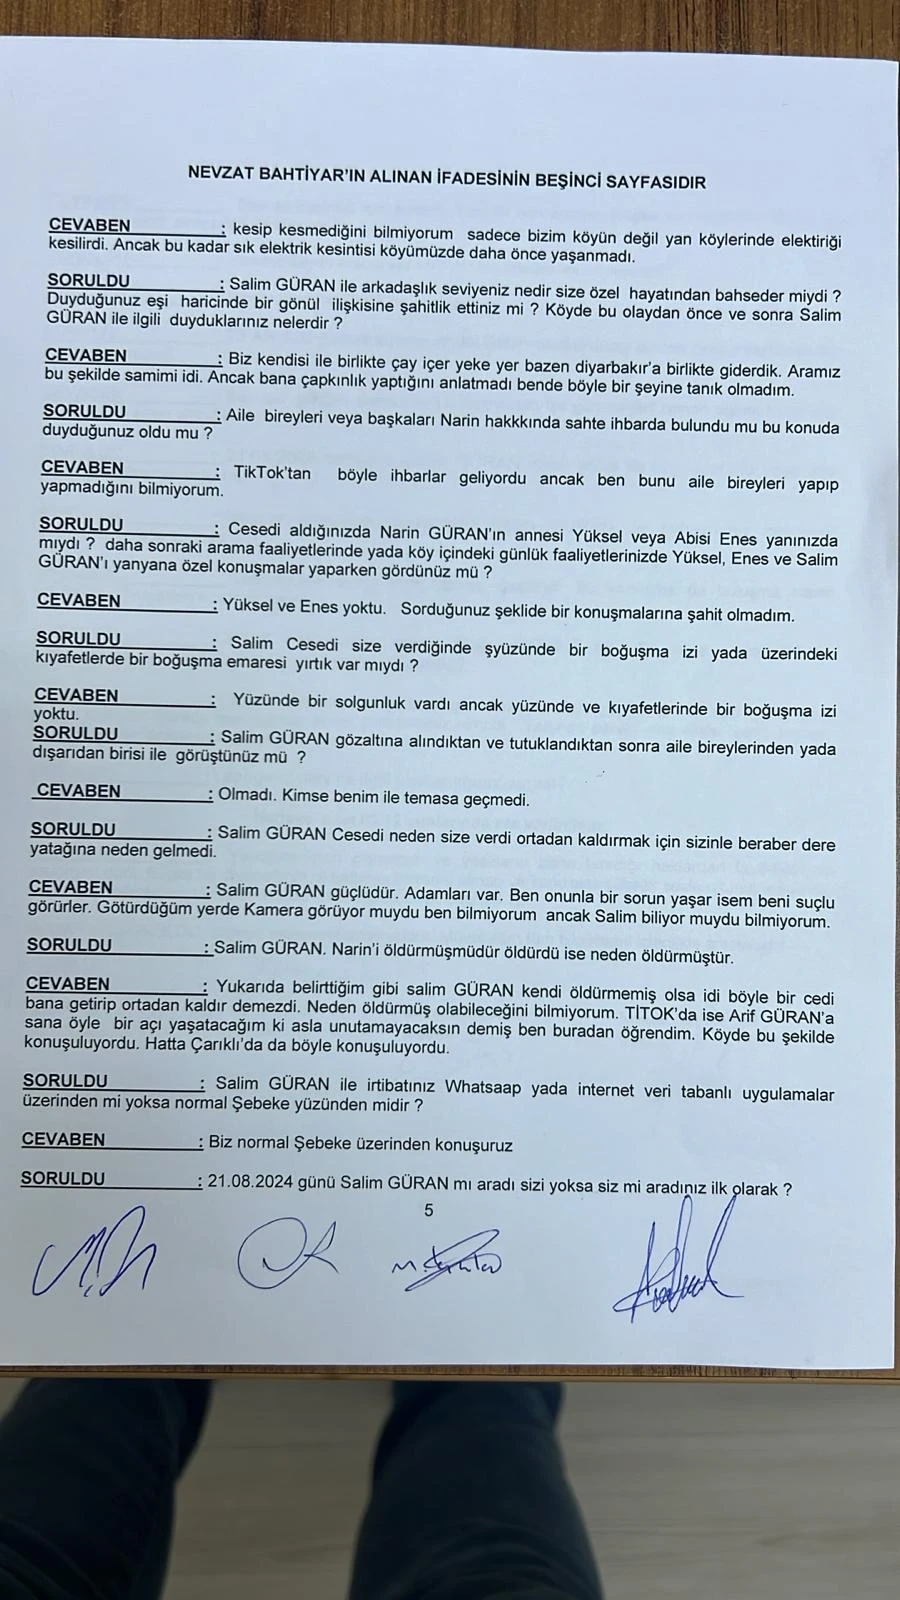 NEVZAT BAHTİYAR'IN ALINAN İFADESİNİN BEŞİNCİ SAYFASIDIR
CEVABEN : kesip kesmediğini bilmiyorum sadece bizim köyün değil yan köylerinde elektiriği
kesilirdi. Ancak bu kadar sık elektrik kesintisi köyümüzde daha önce yaşanmadı.
SORULDU : Salim GÜRAN ile arkadaşlık seviyeniz nedir size özel hayatından bahseder miydi ?
Duyduğunuz eşi haricinde bir gönül ilişkisine şahitlik ettiniz mi ? Köyde bu olaydan önce ve sonra Salim
GÜRAN ile ilgili duyduklarınız nelerdir ?
CEVABEN : Biz kendisi ile birlikte çay içer yeke yer bazen diyarbakır'a birlikte giderdik. Aramız
bu şekilde samimi idi. Ancak bana çapkınlık yaptığını anlatmadı bende böyle bir şeyine tanık olmadım.
SORULDU : Aile bireyleri veya başkaları Narin hakkkında sahte ihbarda bulundu mu bu konuda
duyduğunuz oldu mu ?
CEVABEN : TikTok'tan böyle ihbarlar geliyordu ancak ben bunu aile bireyleri yapıp
yapmadığını bilmiyorum.
SORULDU : Cesedi aldığınızda Narin GÜRAN'ın annesi Yüksel veya Abisi Enes yanınızda
mıydı ? daha sonraki arama faaliyetlerinde yada köy içindeki günlük faaliyetlerinizde Yüksel, Enes ve Salim
GÜRAN'ı yanyana özel konuşmalar yaparken gördünüz mü ?
CEVABEN : Yüksel ve Enes yoktu. Sorduğunuz şeklide bir konuşmalarına şahit olmadım.
SORULDU : Salim Cesedi size verdiğinde şyüzünde bir boğuşma izi yada üzerindeki
kıyafetlerde bir boğuşma emaresi yırtık var mıydı ?
CEVABEN : Yüzünde bir solgunluk vardı ancak yüzünde ve kıyafetlerinde bir boğuşma izi
yoktu.
SORULDU : Salim GÜRAN gözaltına alındıktan ve tutuklandıktan sonra aile bireylerinden yada
dışarıdan birisi ile görüştünüz mü ?
CEVABEN : Olmadı. Kimse benim ile temasa geçmedi.
SORULDU : Salim GÜRAN Cesedi neden size verdi ortadan kaldırmak için sizinle beraber dere
yatağına neden gelmedi.
CEVABEN : Salim GÜRAN güçlüdür. Adamları var. Ben onunla bir sorun yaşar isem beni suçlu
görürler. Götürdüğüm yerde Kamera görüyor muydu ben bilmiyorum ancak Salim biliyor muydu bilmiyorum.
SORULDU : Salim GÜRAN. Narin'i öldürmüşmüdür öldürdü ise neden öldürmüştür.
CEVABEN : Yukarıda belirttiğim gibi salim GÜRAN kendi öldürmemiş olsa idi böyle bir cedi
bana getirip ortadan kaldır demezdi. Neden öldürmüş olabileceğini bilmiyorum. TİTOK'da ise Arif GÜRAN'a
sana öyle bir açı yaşatacağım ki asla unutamayacaksın demiş ben buradan öğrendim. Köyde bu şekilde
konuşuluyordu. Hatta Çarıklı'da da böyle konuşuluyordu.
SORULDU : Salim GÜRAN ile irtibatınız Whatsaap yada internet veri tabanlı uygulamalar
üzerinden mi yoksa normal Şebeke yüzünden midir ?
CEVABEN : Biz normal Şebeke üzerinden konuşuruz
SORULDU : 21.08.2024 günü Salim GÜRAN mı aradı sizi yoksa siz mi aradınız ilk olarak ?
5